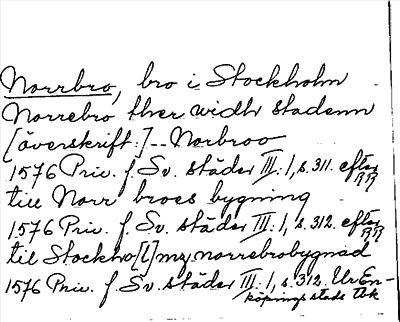 Norrbro, bro i Stockholm
Norrebro ther widh stadenn
[överskrift:] -- Norbroo
1576 Priv. f. Sv. städer III: 1, s. 311. efter RR
till Norr broes bygning
1576 Priv. f. Sv. städer III: 1, s. 312. efter RR
til Stockho[l]mz norrebrobygnad
1576 Priv. f. Sv. städer III: 1, s. 312. Ur En-
köpings stads ark